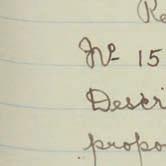 Re
No 15
Descri
propo